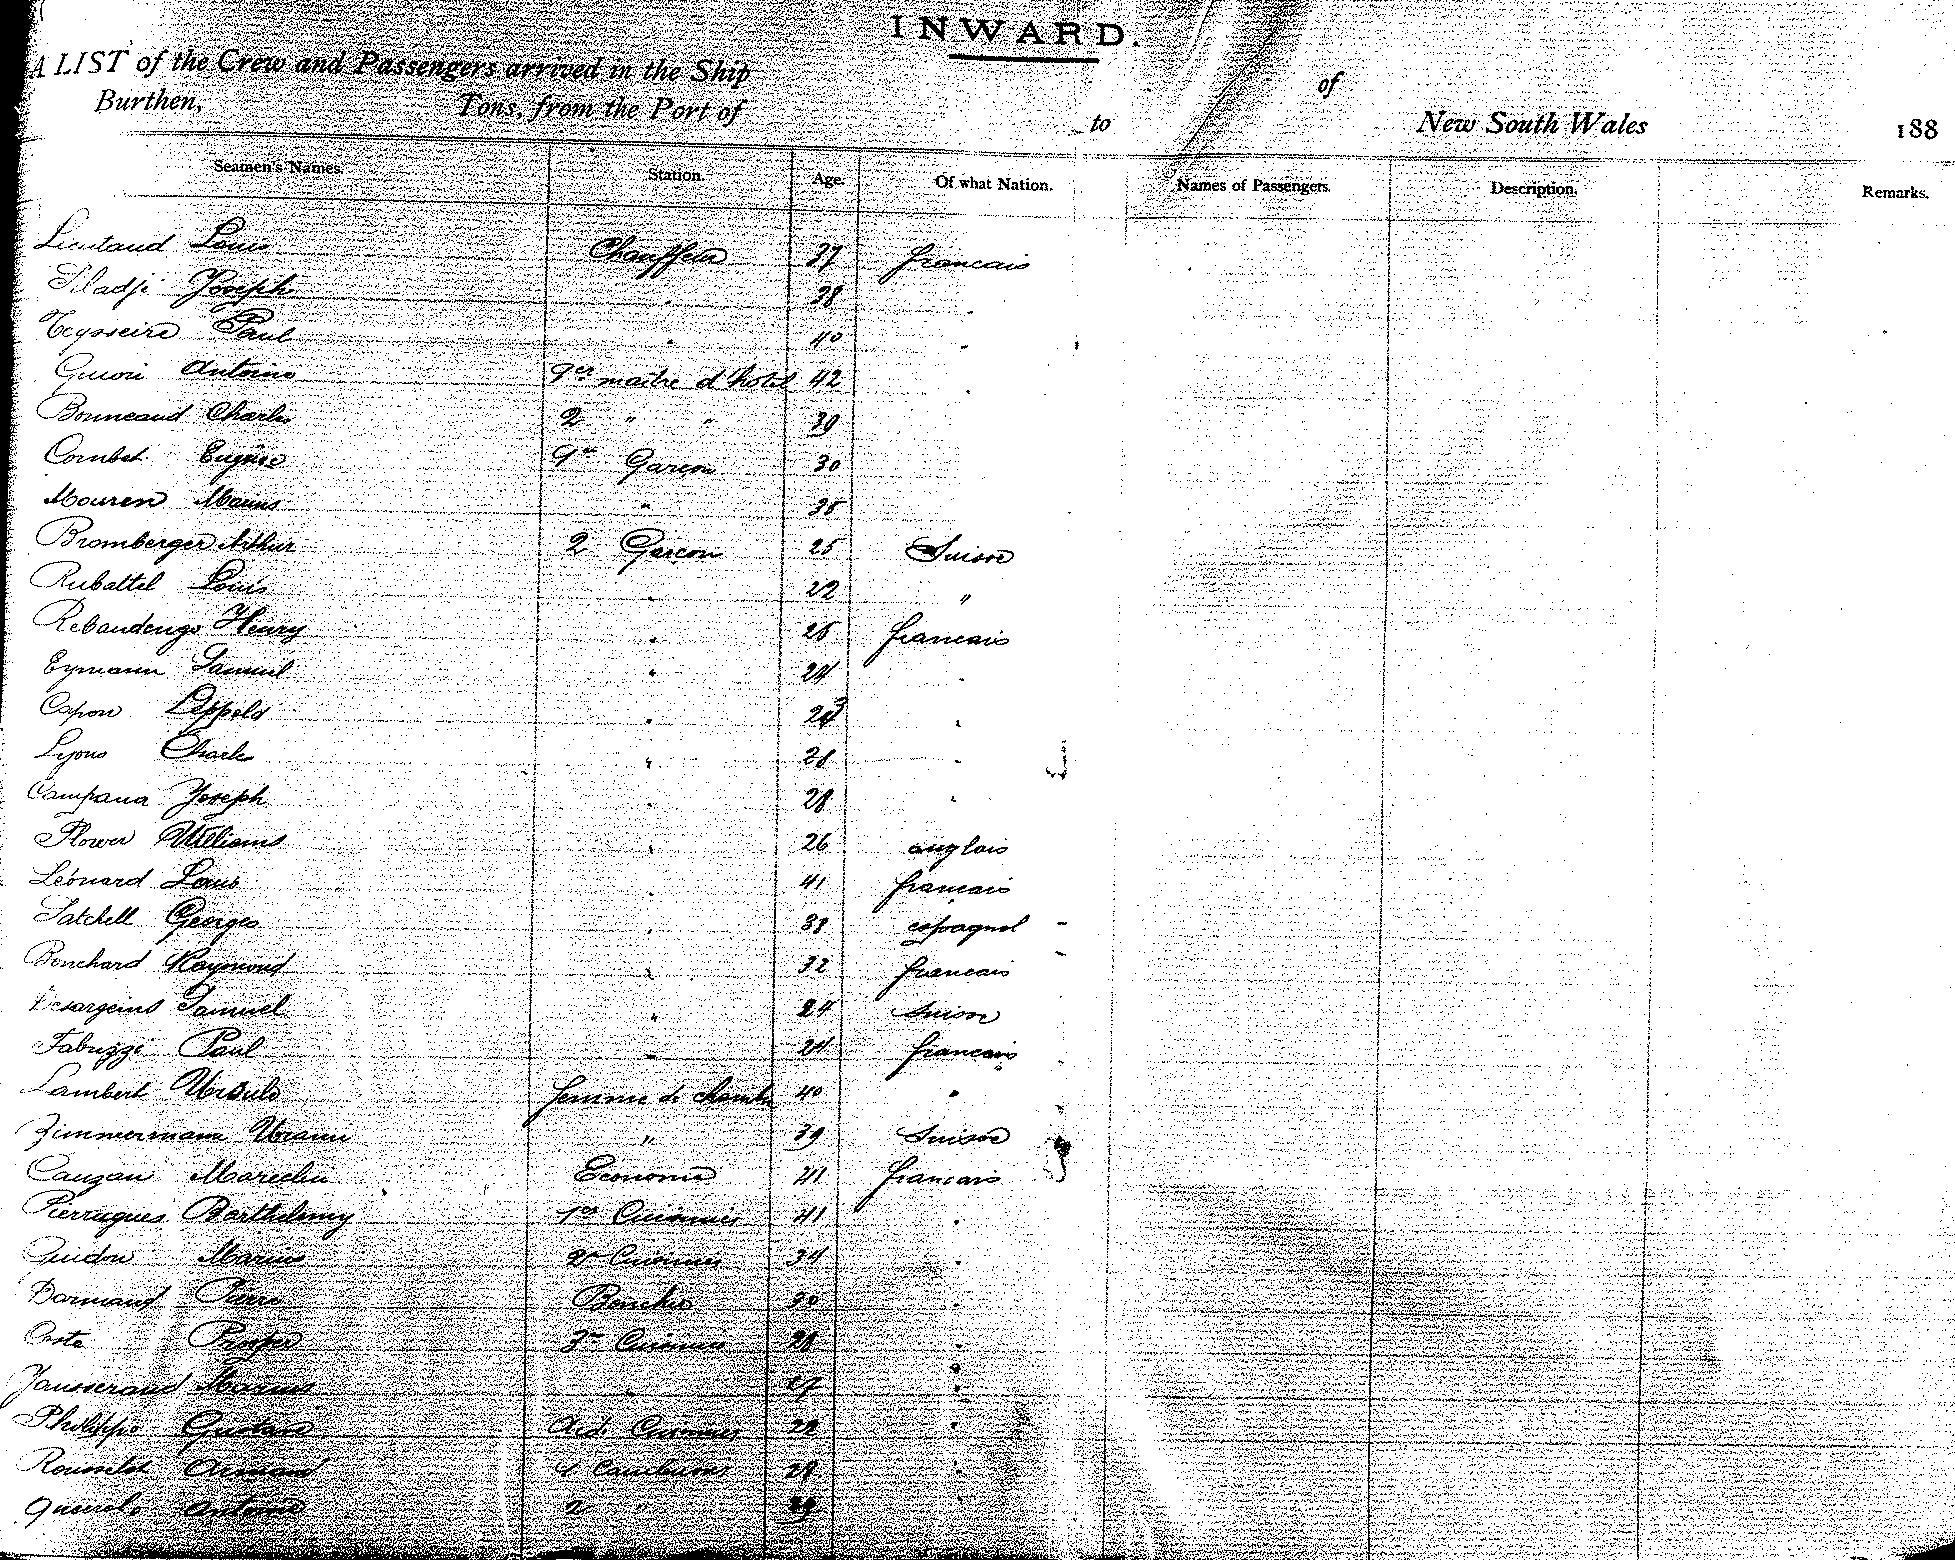 INWARD.
A LIST of the Crew and Passengers arrived in the Ship of
Burthen, Tons, from the Port of to New South Wales 188
Seamen's Names. Station. Age. Of what Nation. Names of Passengers. Description. Remarks.
Lieutaud Louis Chauffeur 37 francais
Joseph " 38 "
Teysseire Paul " 40 "
Antoine 1er maitre d'hotel 42 "
Bonneaud Charles 2 " " 39
Combet Eugène 1er Garcon 30
Mouren Marius " 35
Bromberger Arthur 2 Garcon 25 Suisse
Rubattel Louis " 22 "
Rebaudengo Henry " 25 francais
Eymann Samuel " 24 "
Capon " "
Lyons Charles " 28 "
Campana Joseph " 28 "
Flower Williams " 26 anglais
Léonard Louis " 41 francais
Satchell Georges " 38 espagnol
Bouchard Raymond " 32 francais
Samuel " 24 Suisse
Fabuzzi Paul " 24 francais
Lambert Ursule femme de chambre 40 "
Zimmermann " 39 Suisse
Cauzan Econome 41 francais
Pierrugues Barthelemy 1er Cuisinier 41 "
Guidon Marius 2e Cuisinier 34 "
Pierre Boucher "
Coste Prosper 3e Cuisinier 28 "
Jausserand Marius " 27 "
Philippe Gustave Aid. Cuisinier "
Rousselot Armand 29 "
Antoine 2 "